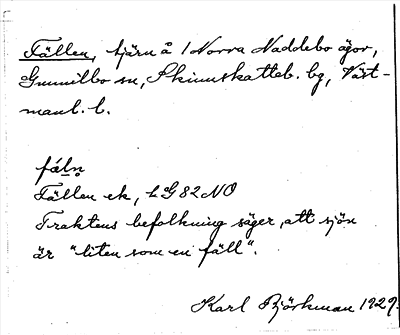 Fällen, tjärn å / Norra Naddebo ägor,
Gunnilbo sn, Skinnskatteb. bg, Väst-
manl. l.
fáln
Fällen ek, LG 82 NO
Traktens befolkning säger, att sjön
är "liten som en fäll".
Karl Björkman 1929.